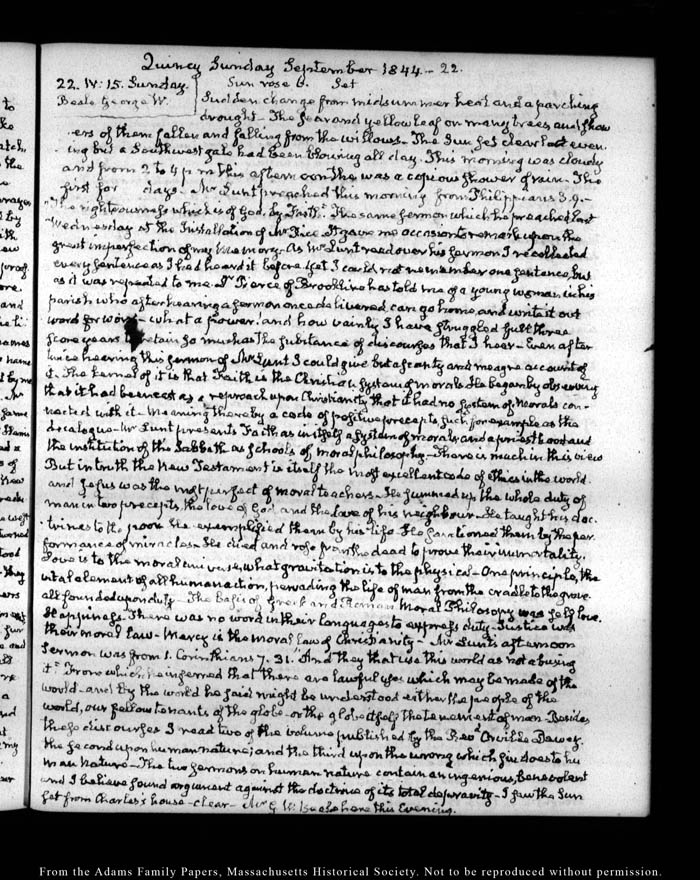 Quincy Sunday September 1844.- 22.
22. IV: 15. Sunday.
Sun rose 6. Set
Beale George W.
Sudden change from midsummer heat and a parching
drought - The sear and yellow leaf on many trees, and show
ers of them fallen and falling from the willows. The Sun set clear last even
ing but a Southwest gale had been blowing all day. This morning was cloudy
and from 2 to 4 p.m this afternoon there was a copious shower of rain. The
first for days. Mr Lunt preached this morning from Philippians 3.9.-
"The righteousness which is of God, by Faith". The same sermon which he preached last
Wednesday at the Installation of Mr Rice. It gave me occasion to remark upon the
great imperfection of my Memory. As Mr Lunt read over his sermon I recollected
every sentence as I had heard it before. Yet I could not remember one sentence, but
as it was repeated to me. Dr Pierce of Brookline has told me of a young woman in his
parish who after hearing a sermon once delivered can go home, and write it out
word for word - what a power! and how vainly I have struggled full three
score years to retain so much as the substance of discourses that I hear - Even after
twice hearing this sermon of Mr Lunt I could give but a scanty and meagre account of
it. The kernel of it is that Faith is the Christian system of morals. He began by observing
that it had been cast as a reproach upon Christianity that it had no system of Morals con-
nected with it - Meaning thereby a code of positive precepts such for example as the
decalogue - Mr Lunt presents Faith as in itself a system of morals, and a priesthood and
the institution of the Sabbath as schools of moral philosophy - There is much in this view
But in truth the New Testament is itself the most excellent code of Ethics in the world
and Jesus was the most perfect of moral teachers - He summed up the whole duty of
man in two precepts, the love of God and the love of his neighbour - He taught his doc-
trines to the poor He exemplified them by his life He sanctioned them by the per
formance of miracles. He died and rose from the dead to prove their immortality.
Love is to the moral universe, what gravitation is to the physical - One principle, the
vital element of all human action, pervading the life of man from the cradle to the grave
all founded upon duty - The basis of Greek and Roman Moral Philosophy was self love.
Happiness. There was no word in their languages to express duty - Justice was
their moral law - Mercy is the moral law of Christianity - Mr Lunt's afternoon
Sermon was from 1. Corinthians 7. 31. "And they that use this world as not abusing
it." From which he inferred that there are lawful uses which may be made of the
world - and by the world he said might be understood either the people of the
world, our fellow tenants of the globe - or the globe itself the tenement of man - Besides
these discourses I read two of the volume published by the Revd Orville Dewey.
the second upon human nature; and the third upon the wrong which sin does to hu
man nature - The two sermons on human nature contain an ingenious, benevolent
and I believe sound argument against the doctrine of its total depravity - I saw the Sun
set from Charles's house - clear - Mr G. W. Beale here this Evening.
From the Adams Family Papers, Massachusetts Historical Society. Not to be reproduced without permission.